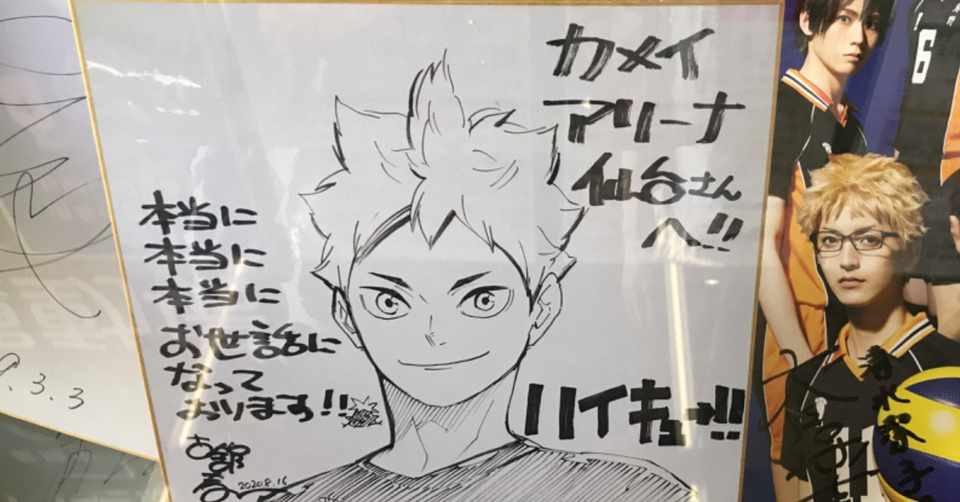 カメイ
アリーナ
仙台さん
へ!!
本当に
本当に
本当に
お世話に
なって
おります!!
ハイキュー!!
古舘
春一
2020.8.16
3.3
6